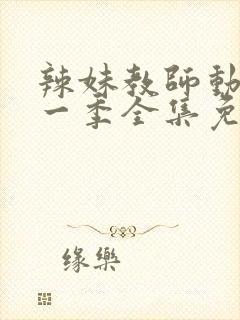 辣妹教師動
一季全集免
缘樂